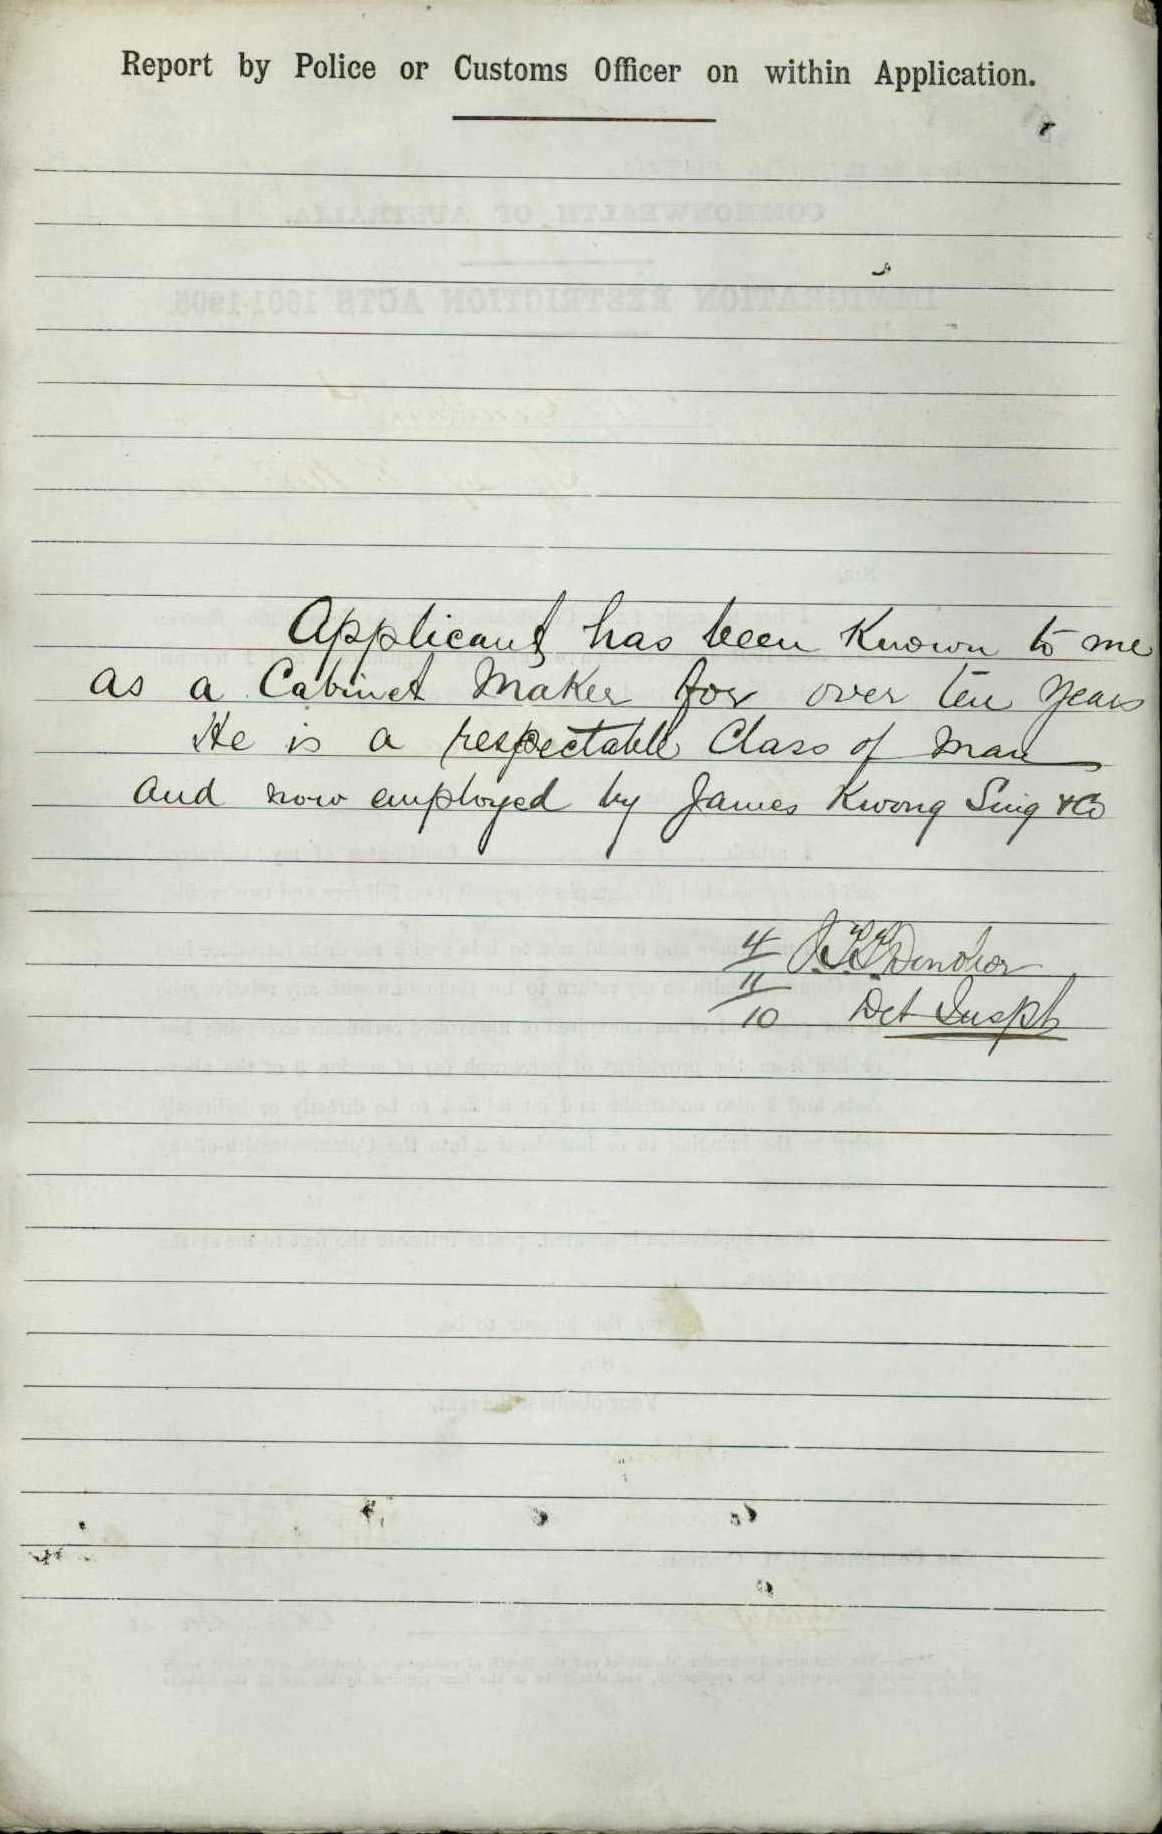 Report by Police or Customs Officer on within Application.
Applicant has been Known to me
as a Cabinet Maker for over ten years
He is a respectable Class of man
and now employed by James Kwong Sing & Co
4
11
10
Det Inspt